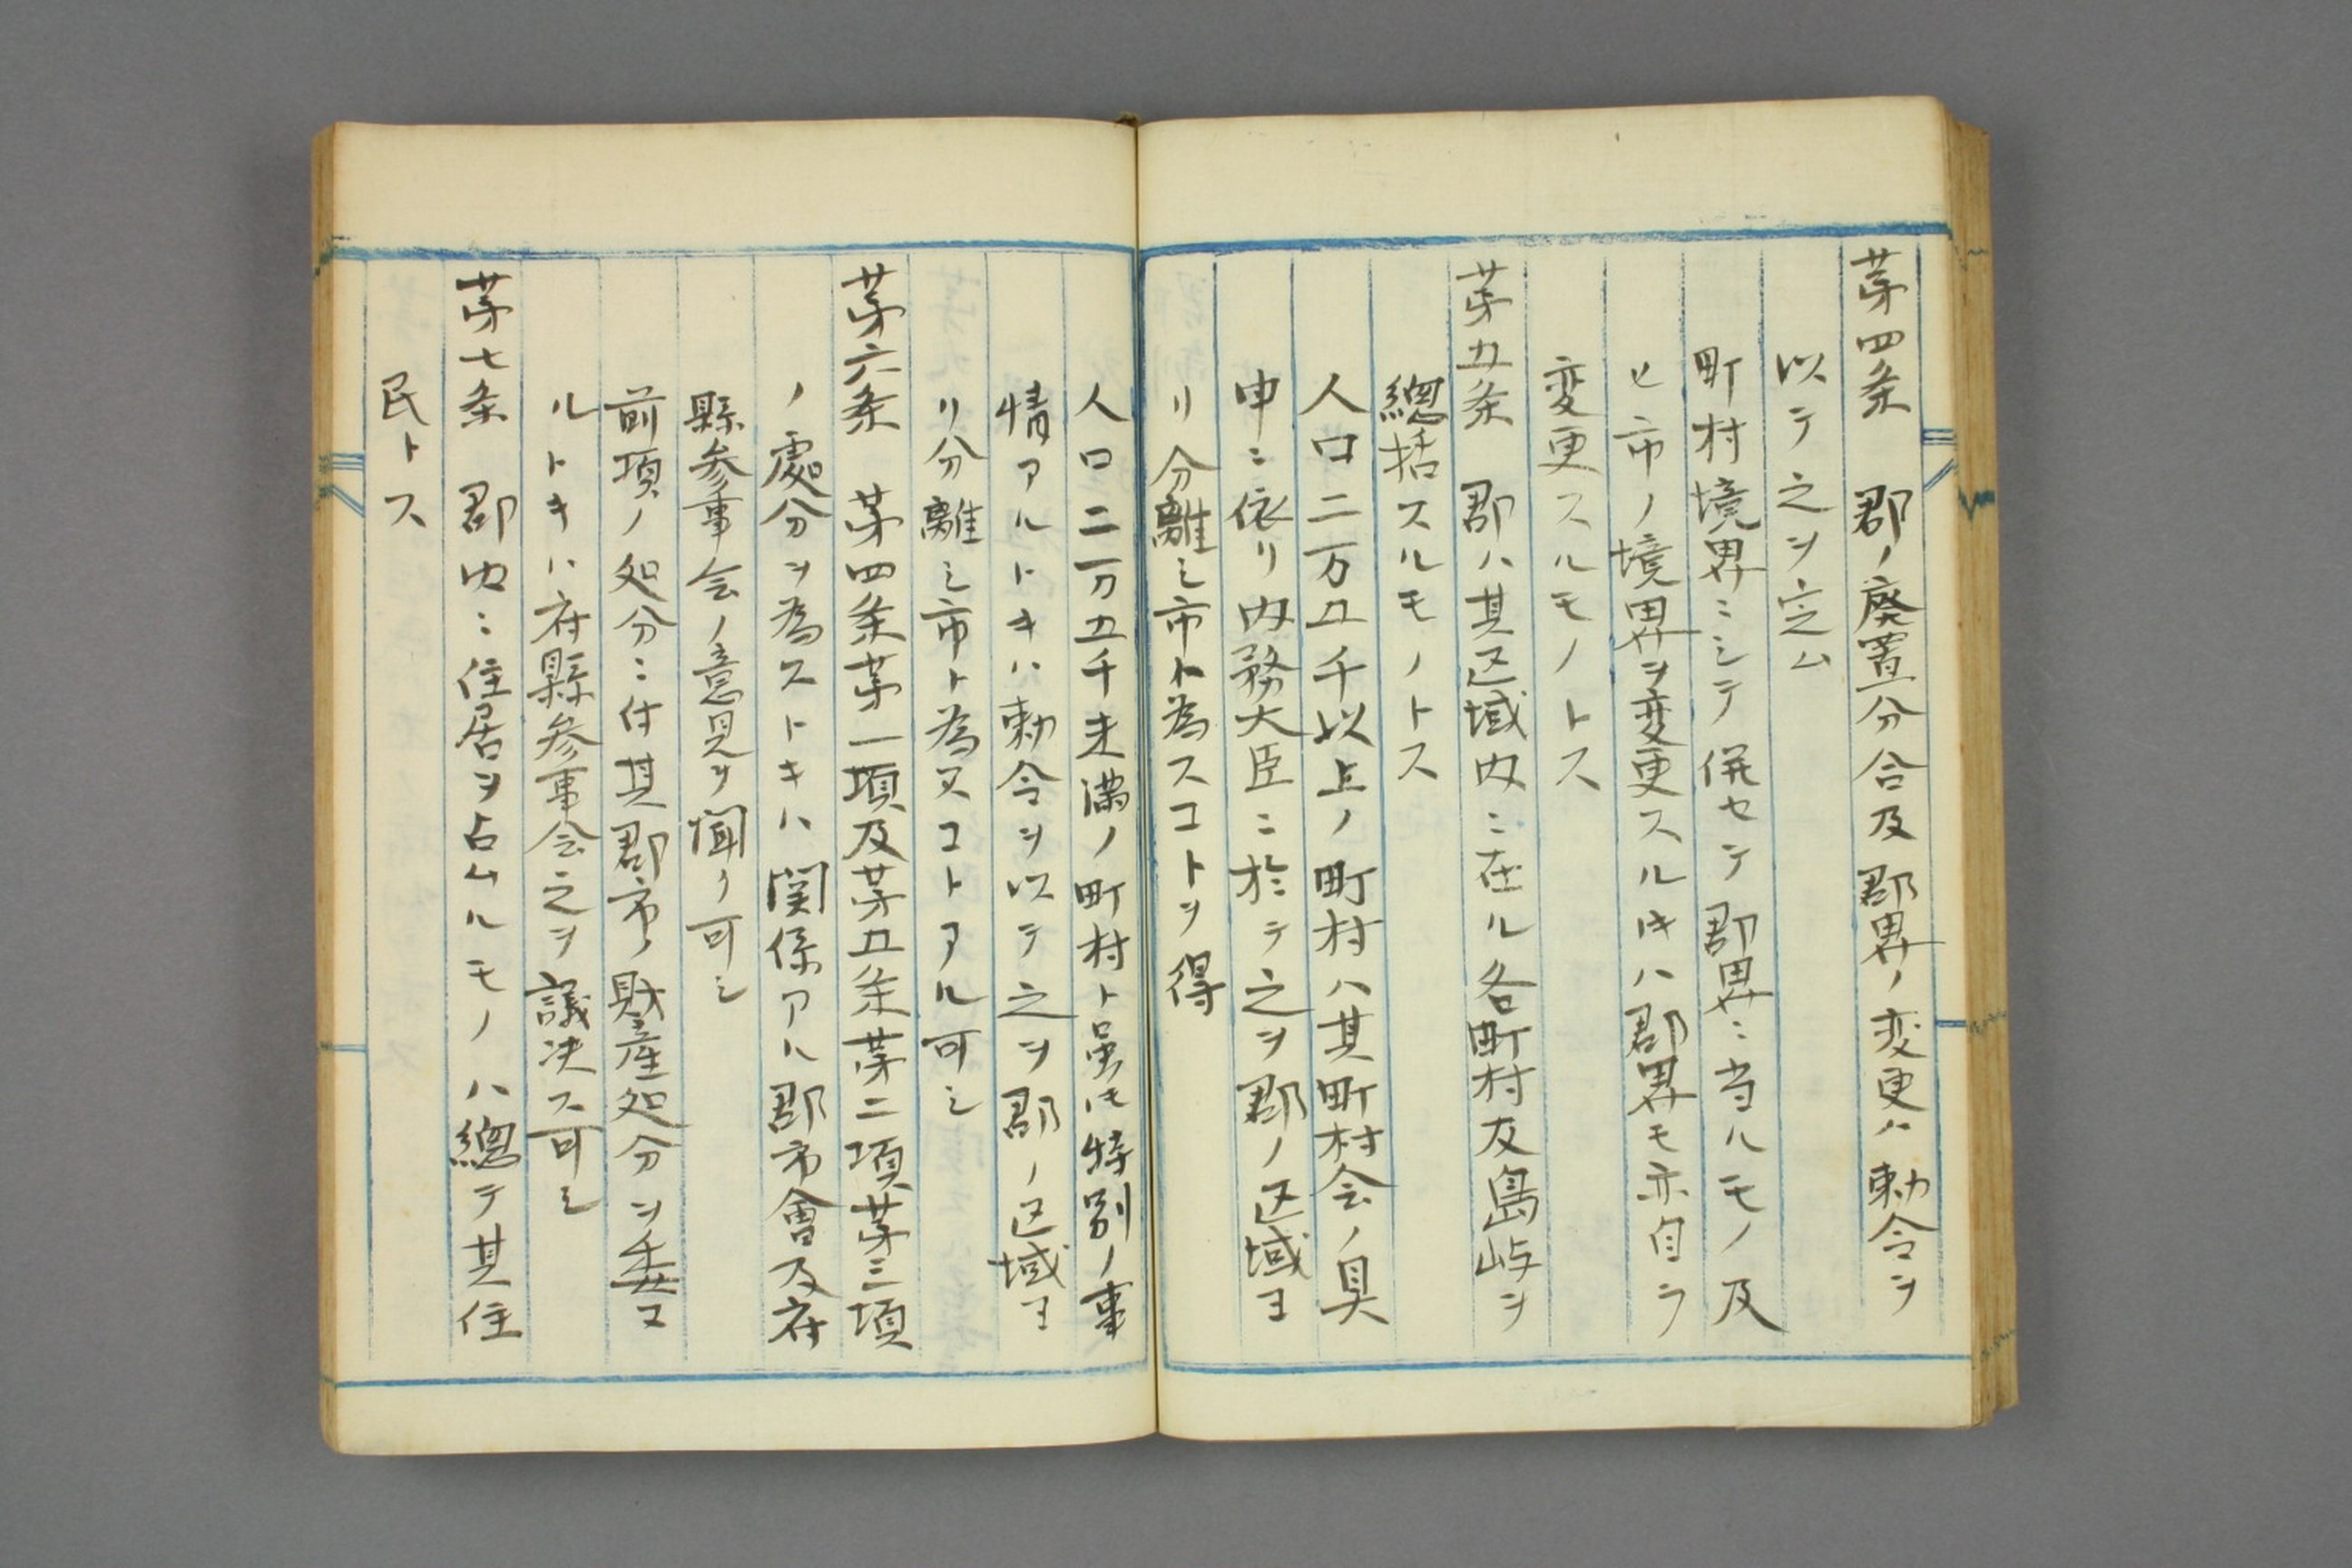 第四条　郡ノ廃置分合及郡界ノ変更ハ勅令ヲ
以テ之ヲ定ム
町村境界ニシテ併セテ郡界ニ当ルモノ及
ヒ市ノ境界ヲ変更スルトキハ郡界モ亦自ラ
変更スルモノトス
第五条　郡ハ其区域内ニ在ル各町村及島嶼ヲ
總括スルモノトス
人口二万五千以上ノ町村ハ其町村会ノ具
申ニ依リ内務大臣ニ於テ之ヲ郡ノ区域ヨ
リ分離シ市ト為スコトヲ得
人口二万五千未満ノ町村ト虽トモ特別ノ事
情アルトキハ勅令ヲ以テ之ヲ郡ノ区域ヨ
リ分離シ市ト為スコトアル可シ
第六条　第四条第一項及第五条第二項第三項
ノ處分ヲ為ストキハ関係アル郡市會及府
縣参事会ノ意見ヲ聞ク可シ
前項ノ処分ニ付其郡市ノ財産処分ヲ要ス
ルトキハ府縣参事会之ヲ議决ス可シ
第七条　郡内ニ住居ヲ占ムルモノハ總テ其住
民トス